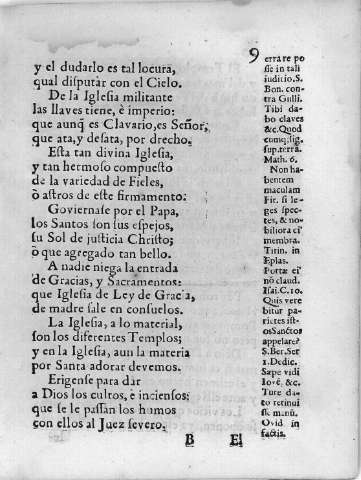 9
y el dudarlo es tal locura,
qual disputàr con el Cielo.
De la Iglesia militante
las llaves tiene, è imperio:
que aunq̃ es Clavario, es Señor,
que ata, y desata, por drecho.
Esta tan divina Iglesia,
y tan hermoso compuesto
de la variedad de Fieles,
ò astros de este firmamento:
Goviernase por el Papa,
los Santos son sus espejos,
su Sol de justicia Christo;
ò que agregado tan bello.
A nadie niega la entrada
de Gracias, y Sacramentos:
que Iglesia de Ley de Gracia,
de madre sale en consuelos.
La Iglesia, a lo material,
son los diferentes Templos;
y en la Iglesia, aun la materia
por Santa adorar devemos.
Erigense para dar
a Dios los cultos, è inciensos:
que se le passan los humos
con ellos al Juez severo.
B El
erra re po
sse in tali
iudicio. S.
Bon. con-
tra Gulli.
Tibi da-
bo claves
&c. Quod
cumq; lig.
sup. terrã.
Math. 6.
Non ha-
bentem
maculam
Fir. si le-
ges spec-
tes, & no-
biliora ei
membra.
Titin. in
Eplas.
Portæ ei
nō claud.
Isai. C. 10.
Quis vere
bitur pa-
trictes ist-
os Sanctos
appelare?
S. Ber. Ser
1. Dedic.
Sæpe vidi
Iovē, &c.
Ture da-
to retinui
sse manũ.
Ovid in
factis.